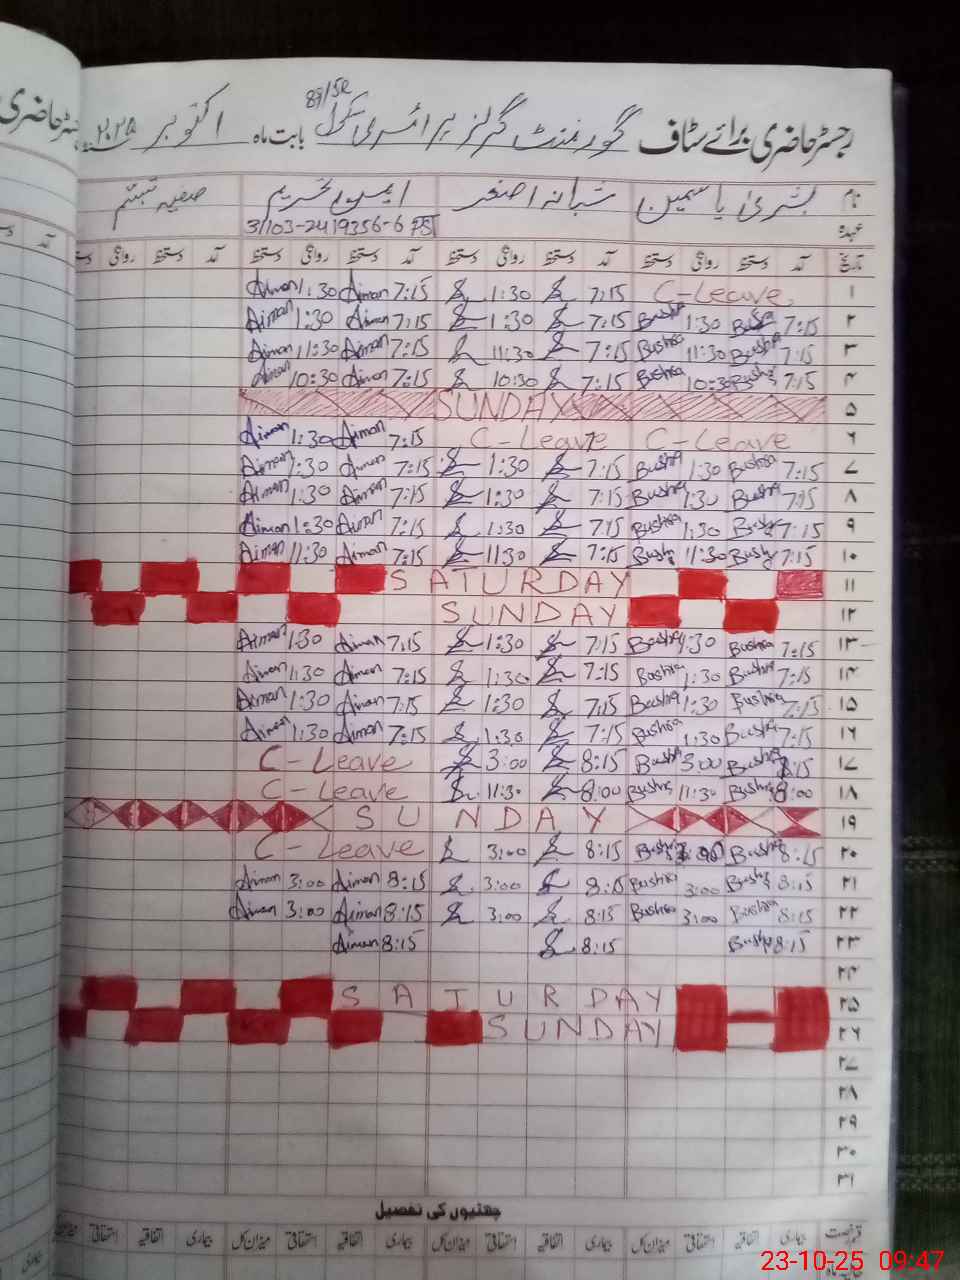 رجسٹر حاضری برائے سٹاف گورنمنٹ گرلز پرائمری سکول 89/5L بابت ماہ اکتوبر ۲۰۲۵
نام بشریٰ یاسمین شبانہ اصغر ایمن تحریم صفیہ تبسم
عہدہ 31103-2419356-6 PST
تاریخ آمد دستخط روانگی دستخط آمد دستخط روانگی دستخط آمد دستخط روانگی دستخط آمد دستخط روانگی
۱ C-Leave 7:15 1:30 7:15 Aiman 1:30 Aiman
۲ 7:15 Bushra 1:30 Bushra 7:15 1:30 7:15 Aiman 1:30 Aiman
۳ 7:15 Bushra 11:30 Bushra 7:15 11:30 7:15 Aiman 11:30 Aiman
۴ 7:15 Bushra 10:30 Bushra 7:15 10:30 7:15 Aiman 10:30 Aiman
۵ SUNDAY
۶ C-Leave C-Leave 7:15 Aiman 1:30 Aiman
۷ 7:15 Bushra 1:30 Bushra 7:15 1:30 7:15 Aiman 1:30 Aiman
۸ 7:15 Bushra 1:30 Bushra 7:15 1:30 7:15 Aiman 1:30 Aiman
۹ 7:15 Bushra 1:30 Bushra 7:15 1:30 7:15 Aiman 1:30 Aiman
۱۰ 7:15 Bushra 11:30 Bushra 7:15 11:30 7:15 Aiman 11:30 Aiman
۱۱ SATURDAY
۱۲ SUNDAY
۱۳ 7:15 Bushra 1:30 Bushra 7:15 1:30 7:15 Aiman 1:30 Aiman
۱۴ 7:15 Bushra 1:30 Bushra 7:15 1:30 7:15 Aiman 1:30 Aiman
۱۵ 7:15 Bushra 1:30 Bushra 7:15 1:30 7:15 Aiman 1:30 Aiman
۱۶ 7:15 Bushra 1:30 Bushra 7:15 1:30 7:15 Aiman 1:30 Aiman
۱۷ 8:15 Bushra 3:00 Bushra 8:15 3:00 C-Leave
۱۸ 8:00 Bushra 11:30 Bushra 8:00 11:30 C-Leave
۱۹ SUNDAY
۲۰ 8:15 Bushra 3:00 Bushra 8:15 3:00 C-Leave
۲۱ 8:15 Bushra 3:00 Bushra 8:15 3:00 8:15 Aiman 3:00 Aiman
۲۲ 8:15 Bushra 3:00 Bushra 8:15 3:00 8:15 Aiman 3:00 Aiman
۲۳ 8:15 Bushra 8:15 8:15 Aiman
۲۴
۲۵ SATURDAY
۲۶ SUNDAY
۲۷
۲۸
۲۹
۳۰
۳۱
چھٹیوں کی تفصیل
قسم رخصت اتفاقیہ بیماری میزان کل استحقاقی اتفاقیہ بیماری میزان کل استحقاقی اتفاقیہ بیماری میزان کل استحقاقی اتفاقیہ بیماری
23-10-25 09:47